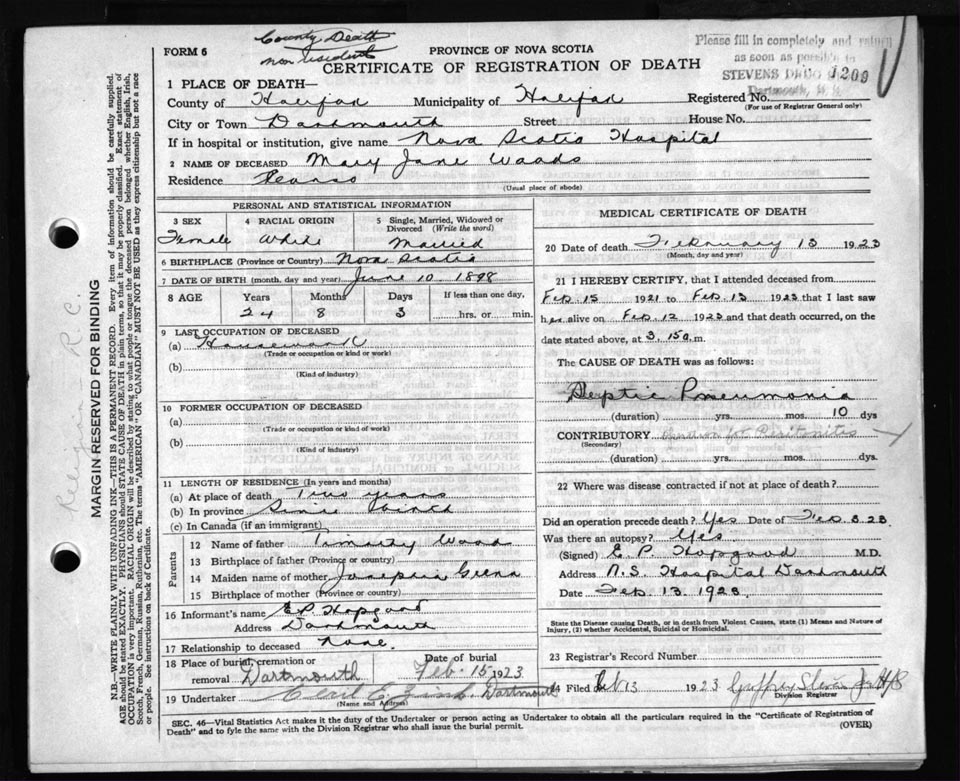 County Death
non resident
FORM 6
PROVINCE OF NOVA SCOTIA
CERTIFICATE OF REGISTRATION OF DEATH
Please fill in completely and return
as soon as possible to
STEVENS DRUG
Dartmouth, N. S.
1209
1 PLACE OF DEATH—
County of Halifax Municipality of Halifax Registered No.
(For use of Registrar General only)
City or Town Dartmouth Street House No.
If in hospital or institution, give name Nova Scotia Hospital
2 NAME OF DECEASED Mary Jane Woods
Residence
(Usual place of abode)
PERSONAL AND STATISTICAL INFORMATION
3 SEX Female
4 RACIAL ORIGIN White
5 Single, Married, Widowed or Divorced (Write the word) Married
6 BIRTHPLACE (Province or Country) Nova Scotia
7 DATE OF BIRTH (month, day and year) June 10. 1898
8 AGE Years Months Days If less than one day,
24 8 3 hrs. or min.
9 LAST OCCUPATION OF DECEASED
(a) Housework
(Trade or occupation or kind or work)
(b)
(Kind of industry)
10 FORMER OCCUPATION OF DECEASED
(a)
(Trade or occupation or kind of work)
(b)
(Kind of industry)
11 LENGTH OF RESIDENCE (In years and months)
(a) At place of death Two years
(b) In province Since Birth
(c) In Canada (if an immigrant)
Parents
12 Name of father Timothy Wood
13 Birthplace of father (Province or country)
14 Maiden name of mother Josephine Green
15 Birthplace of mother (Province or country)
16 Informant's name E.P. Hopgood
Address Dartmouth
17 Relationship to deceased None.
18 Place of burial, cremation or removal Dartmouth Date of burial Feb 15 1923
19 Undertaker Dartmouth
(Name and Address)
MEDICAL CERTIFICATE OF DEATH
20 Date of death February 13 1923
(Month, day and year)
21 I HEREBY CERTIFY, that I attended deceased from
Feb. 15 1921 to Feb. 13 1923 that I last saw
her alive on Feb. 12 1923 and that death occurred, on
date stated above, at 3.15 a.m.
The CAUSE OF DEATH was as follows:
Septic Pneumonia
(duration) yrs. mos. 10 dys
CONTRIBUTORY for Peritonitis
(Secondary)
(duration) yrs. mos. dys.
22 Where was disease contracted if not at place of death?
Did an operation precede death? Yes Date of Feb 3.23
Was there an autopsy? Yes
(Signed) E. P. Hopgood M.D.
Address N.S. Hospital Dartmouth
Date Feb. 13. 1923.
State the Disease causing Death, or in death from Violent Causes, state (1) Means and Nature of
Injury, (2) whether Accidental, Suicidal or Homicidal.
23 Registrar's Record Number
24 Filed Feb 13 1923
Division Registrar
SEC. 46—Vital Statistics Act makes it the duty of the Undertaker or person acting as Undertaker to obtain all the particulars required in the "Certificate of Registration of
Death" and to fyle the same with the Division Registrar who shall issue the burial permit. (OVER)
Religion - R. C.
MARGIN RESERVED FOR BINDING
N.B.—WRITE PLAINLY WITH UNFADING INK—THIS IS A PERMANENT RECORD. Every item of information should be carefully supplied.
AGE should be stated EXACTLY. PHYSICIANS should STATE CAUSE OF DEATH in plain terms, so that it may be properly classified. Exact statement of
OCCUPATION is very important. RACIAL ORIGIN will be described by stating to what people or tongue the deceased person belonged whether English, Irish,
Scotch, French, German, Russian, Ruthenian, etc. The terms "AMERICAN" OR "CANADIAN" MUST NOT BE USED as they express citizenship but not a race
or people. See instructions on back of Certificate.